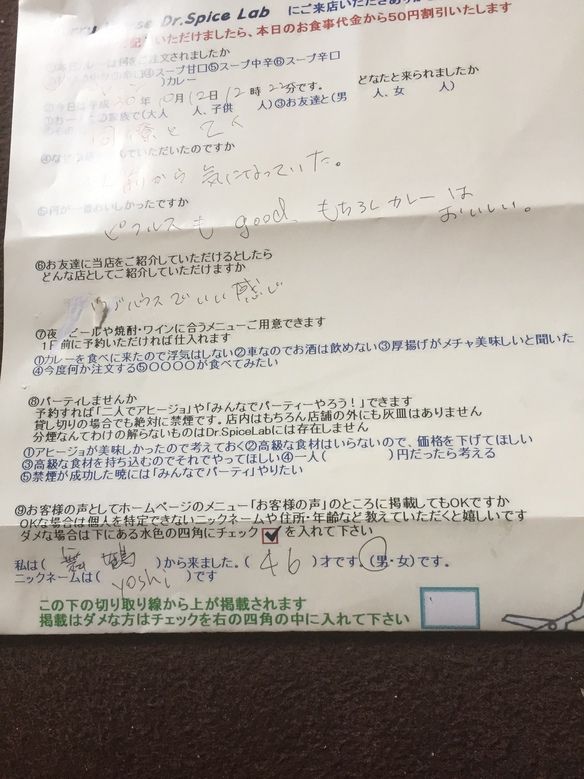 Dr.Spice Lab にご来店いただき
いただけましたら、本日のお食事代金から50円割引いたします
ご注文されましたか
④スープ甘口⑤スープ中辛⑥スープ辛口
)カレー
②今日は平成30年10月12日12時22分です。 どなたと来られましたか
家族で(大人 人、子供 人)③お友達と(男 人、女 人)
同僚と
いただいたのですか
前から気になっていた。
が一番おいしかったですか
ピクルスもgood、もちろんカレーはおいしい。
⑥お友達に当店をご紹介していただけるとしたら
どんな店としてご紹介していただけますか
ハウスでいい感じ
⑦夜 ビールや焼酎・ワインに合うメニューご用意できます
前に予約いただければ仕入れます
①カレーを食べに来たので浮気はしない②車なのでお酒は飲めない③厚揚げがメチャ美味しいと聞いた
④今度何か注文する⑤〇〇〇〇が食べてみたい
⑧パーティしませんか
予約すれば「二人でアヒージョ」や「みんなでパーティーやろう!」できます
貸し切りの場合でも絶対に禁煙です。店内はもちろん店舗の外にも灰皿はありません
分煙なんてわけの解らないものはDr.SpiceLabには存在しません
①アヒージョが美味しかったので考えておく②高級な食材はいらないので、価格を下げてほしい
③高級な食材を持ち込むのでそれでやってほしい④一人( )円だったら考える
⑤禁煙が成功した暁には「みんなでパーティ」やりたい
⑨お客様の声としてホームページのメニュー「お客様の声」のところに掲載してもOKですか
OKな場合は個人を特定できないニックネームや住所・年齢など教えていただくと嬉しいです
ダメな場合は下にある水色の四角にチェック を入れて下さい
私は(舞鶴)から来ました。(46)才です。(男・女)です。
ニックネームは(yoshi)です
この下の切り取り線から上が掲載されます
掲載はダメな方はチェックを右の四角の中に入れて下さい